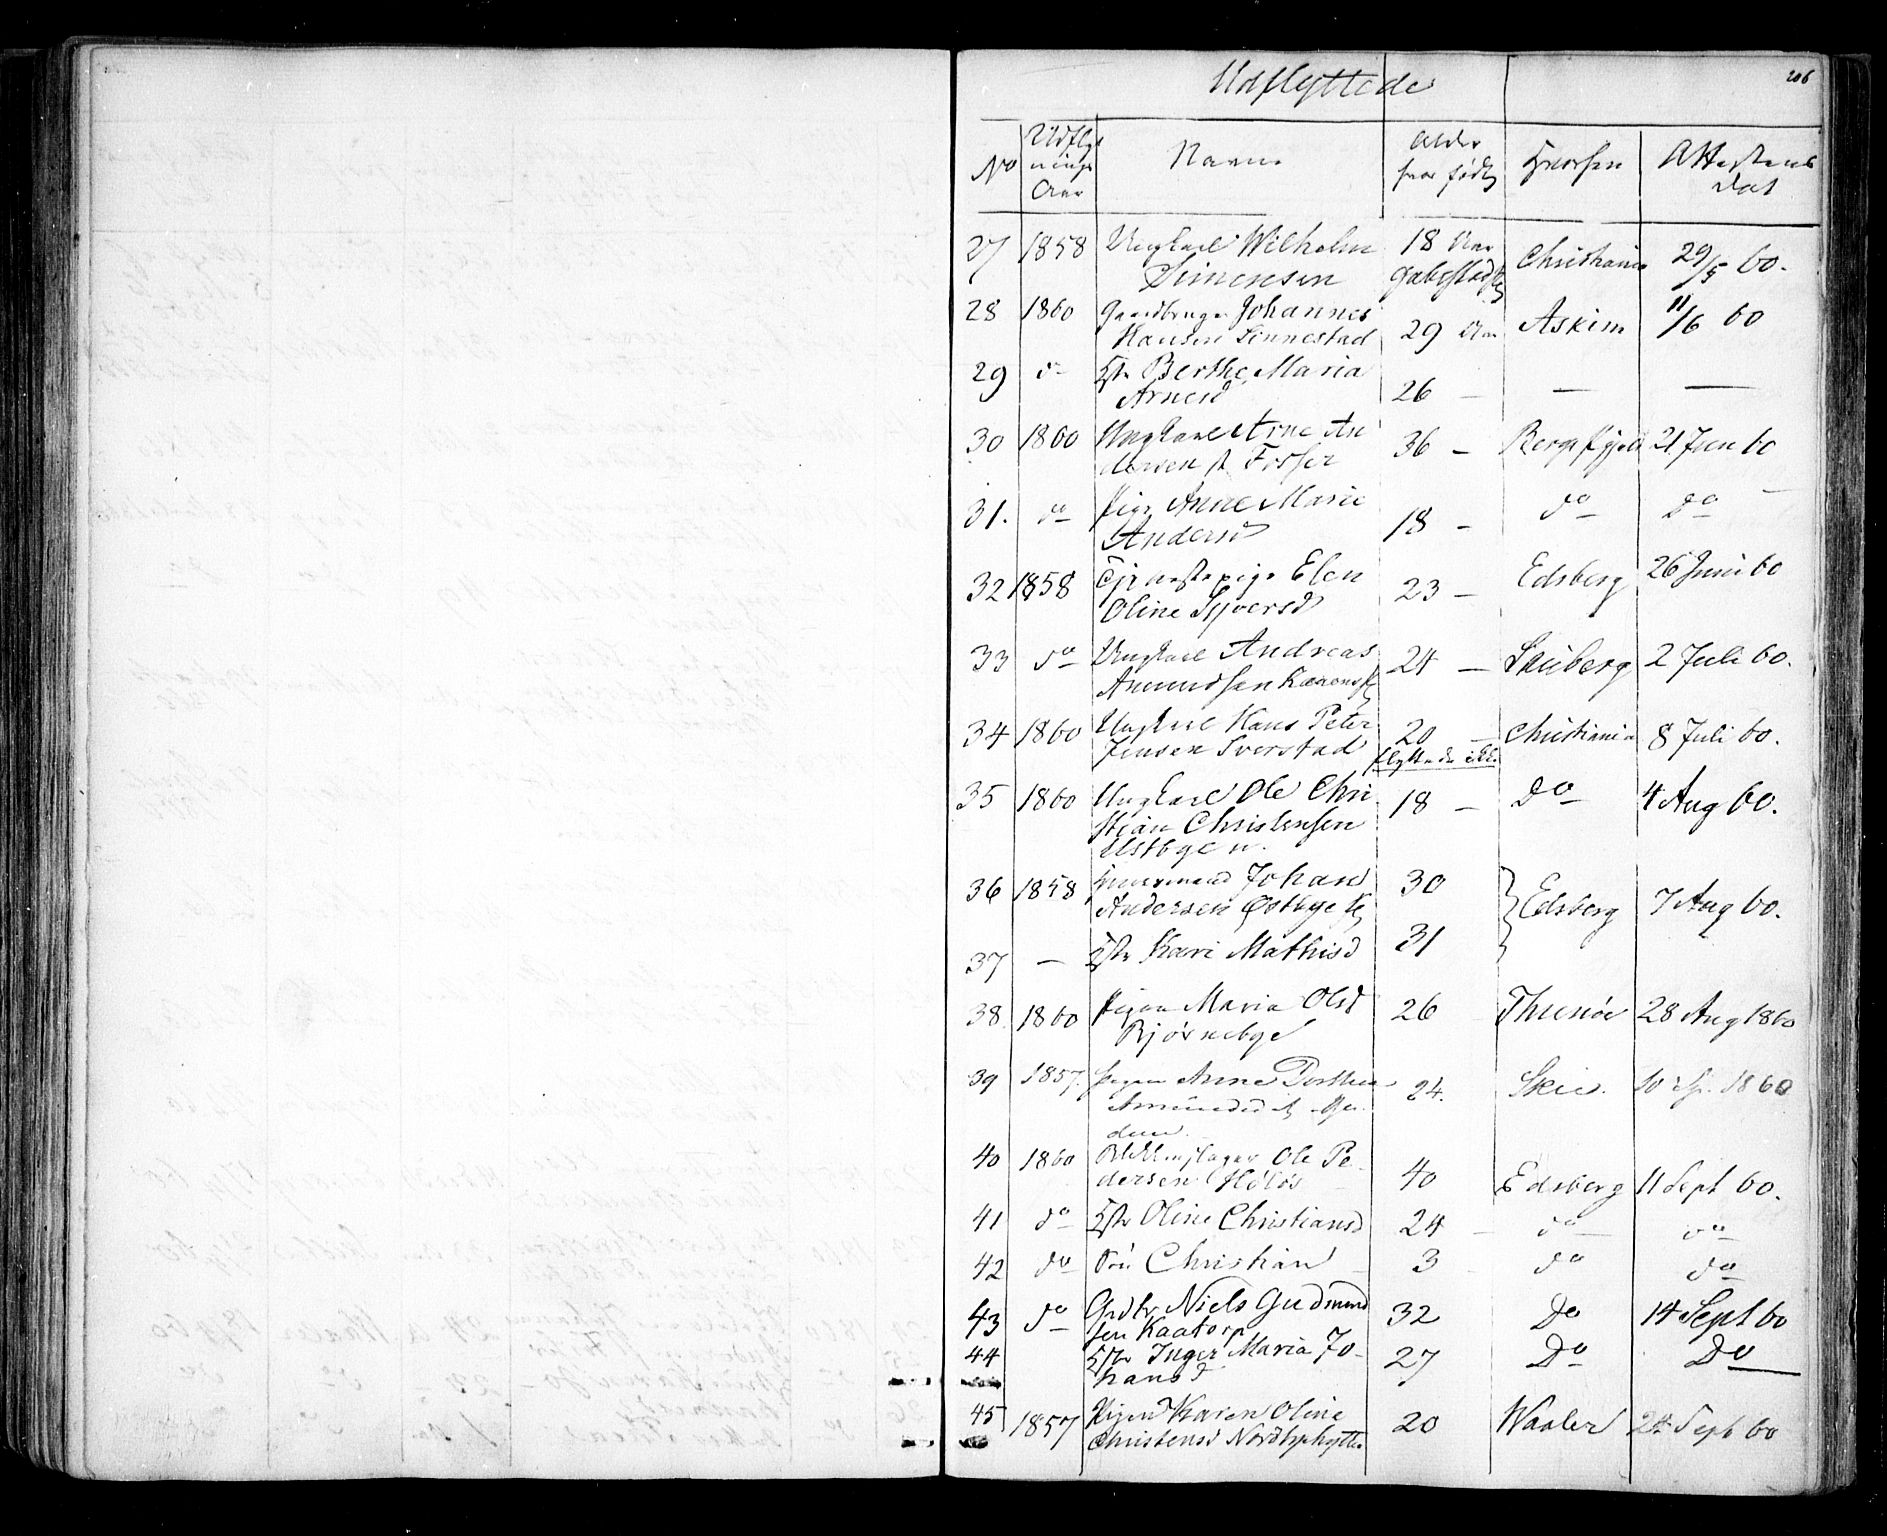 Udflyttede
206
No Udflyt Navn Alder Hvorhen Attestens
nings hvor født Dat
Aar
27 1858 Ungkarl Wilhelm 18 Aar Christiania 29/5 60.
Simensen
28 1860 Gaardbruger Johannes Askim 11/6 60
Hansen Sinnestad 29 Aar
29 do Hst Berthe Maria — —
Arnesd 26 —
30 1860 Ungkarl Arne An 36 — 21 Jun 60
dersen Fosser
31. do Pige Anne Marie 18 — do do
Andersd
32 1858 Tjenestepige Elen 23 — Edsberg 26 Juni 60
Oline Syversd
33 do Ungkarl Andreas 24 — 2 Juli 60.
Amundsen
34 1860 Ungkarl Hans Peter 20 — Christiania 8 Juli 60.
Jensen Sverstad flyttede ikke
35 1860 Ungkarl Ole Chri 18 — Do 4 Aug 60.
stian Christensen
Østbye
36 1858 Huusmand Johan 30 Edsberg 7 Aug 60.
Andersen Østbye
37 — Hst Kari Mathisd 31
38 1860 Pigen Maria Olsd 26 Thunøe 28 Aug 1860
Bjørnebye
39 1857. Pigen Anne Dorthea 24. Skie. 10 1860
Amundsd
40 1860 Ole Pe 40 Edsberg 11 Sept 60.
dersen
41 do Hst Oline Christiansd 24 — do do
42 do Søn Christian 3 do do
43 do Grdbr Niels Gudmund 32 Do 14 Sept 60
sen Kaatorp
44 Hst Inger Maria Jo- 27 Do Do
hansd
45 1857 Pigen Karen Oline 20 Waaler 24 Sept 60
Christensd Nordbyhytte